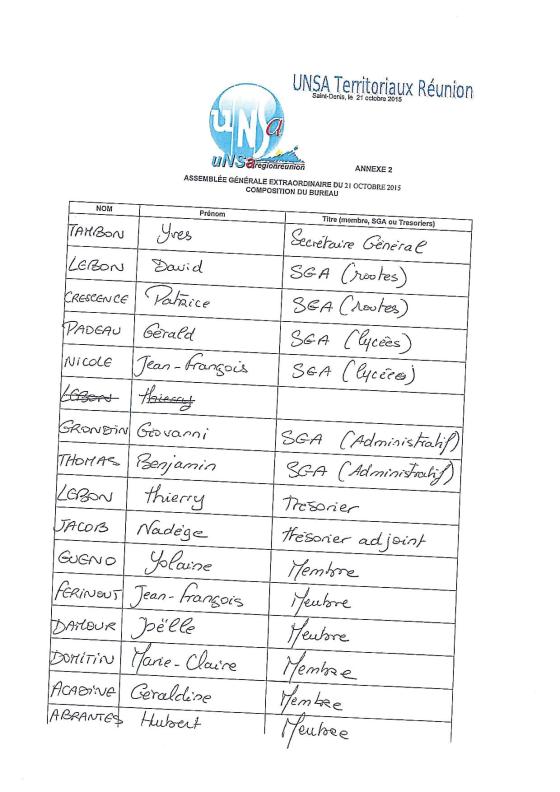 UNSA Territoriaux Réunion
Saint-Denis, le 21 octobre 2015
uNSa
uNSa régionréunion
ANNEXE 2
ASSEMBLÉE GÉNÉRALE EXTRAORDINAIRE DU 21 OCTOBRE 2015
COMPOSITION DU BUREAU
NOM Prénom Titre (membre, SGA ou Tresoriers)
TAMBON Yves Secrétaire Général
LEBON David SGA (routes)
CRESCENCE Patrice SGA (routes)
PADEAU Gérald SGA (lycées)
NICOLE Jean-François SGA (lycées)
LEBON Thierry
GRONDIN Giovanni SGA (Administratif)
THOMAS Benjamin SGA (Administratif)
LEBON Thierry Trésorier
JACOB Nadège trésorier adjoint
GUENO Yolaine Membre
FERINOUT Jean-François Membre
DAMOUR Joëlle Membre
DOMITIN Marie-Claire Membre
ACADINE Géraldine Membre
ABRANTES Hubert Membre